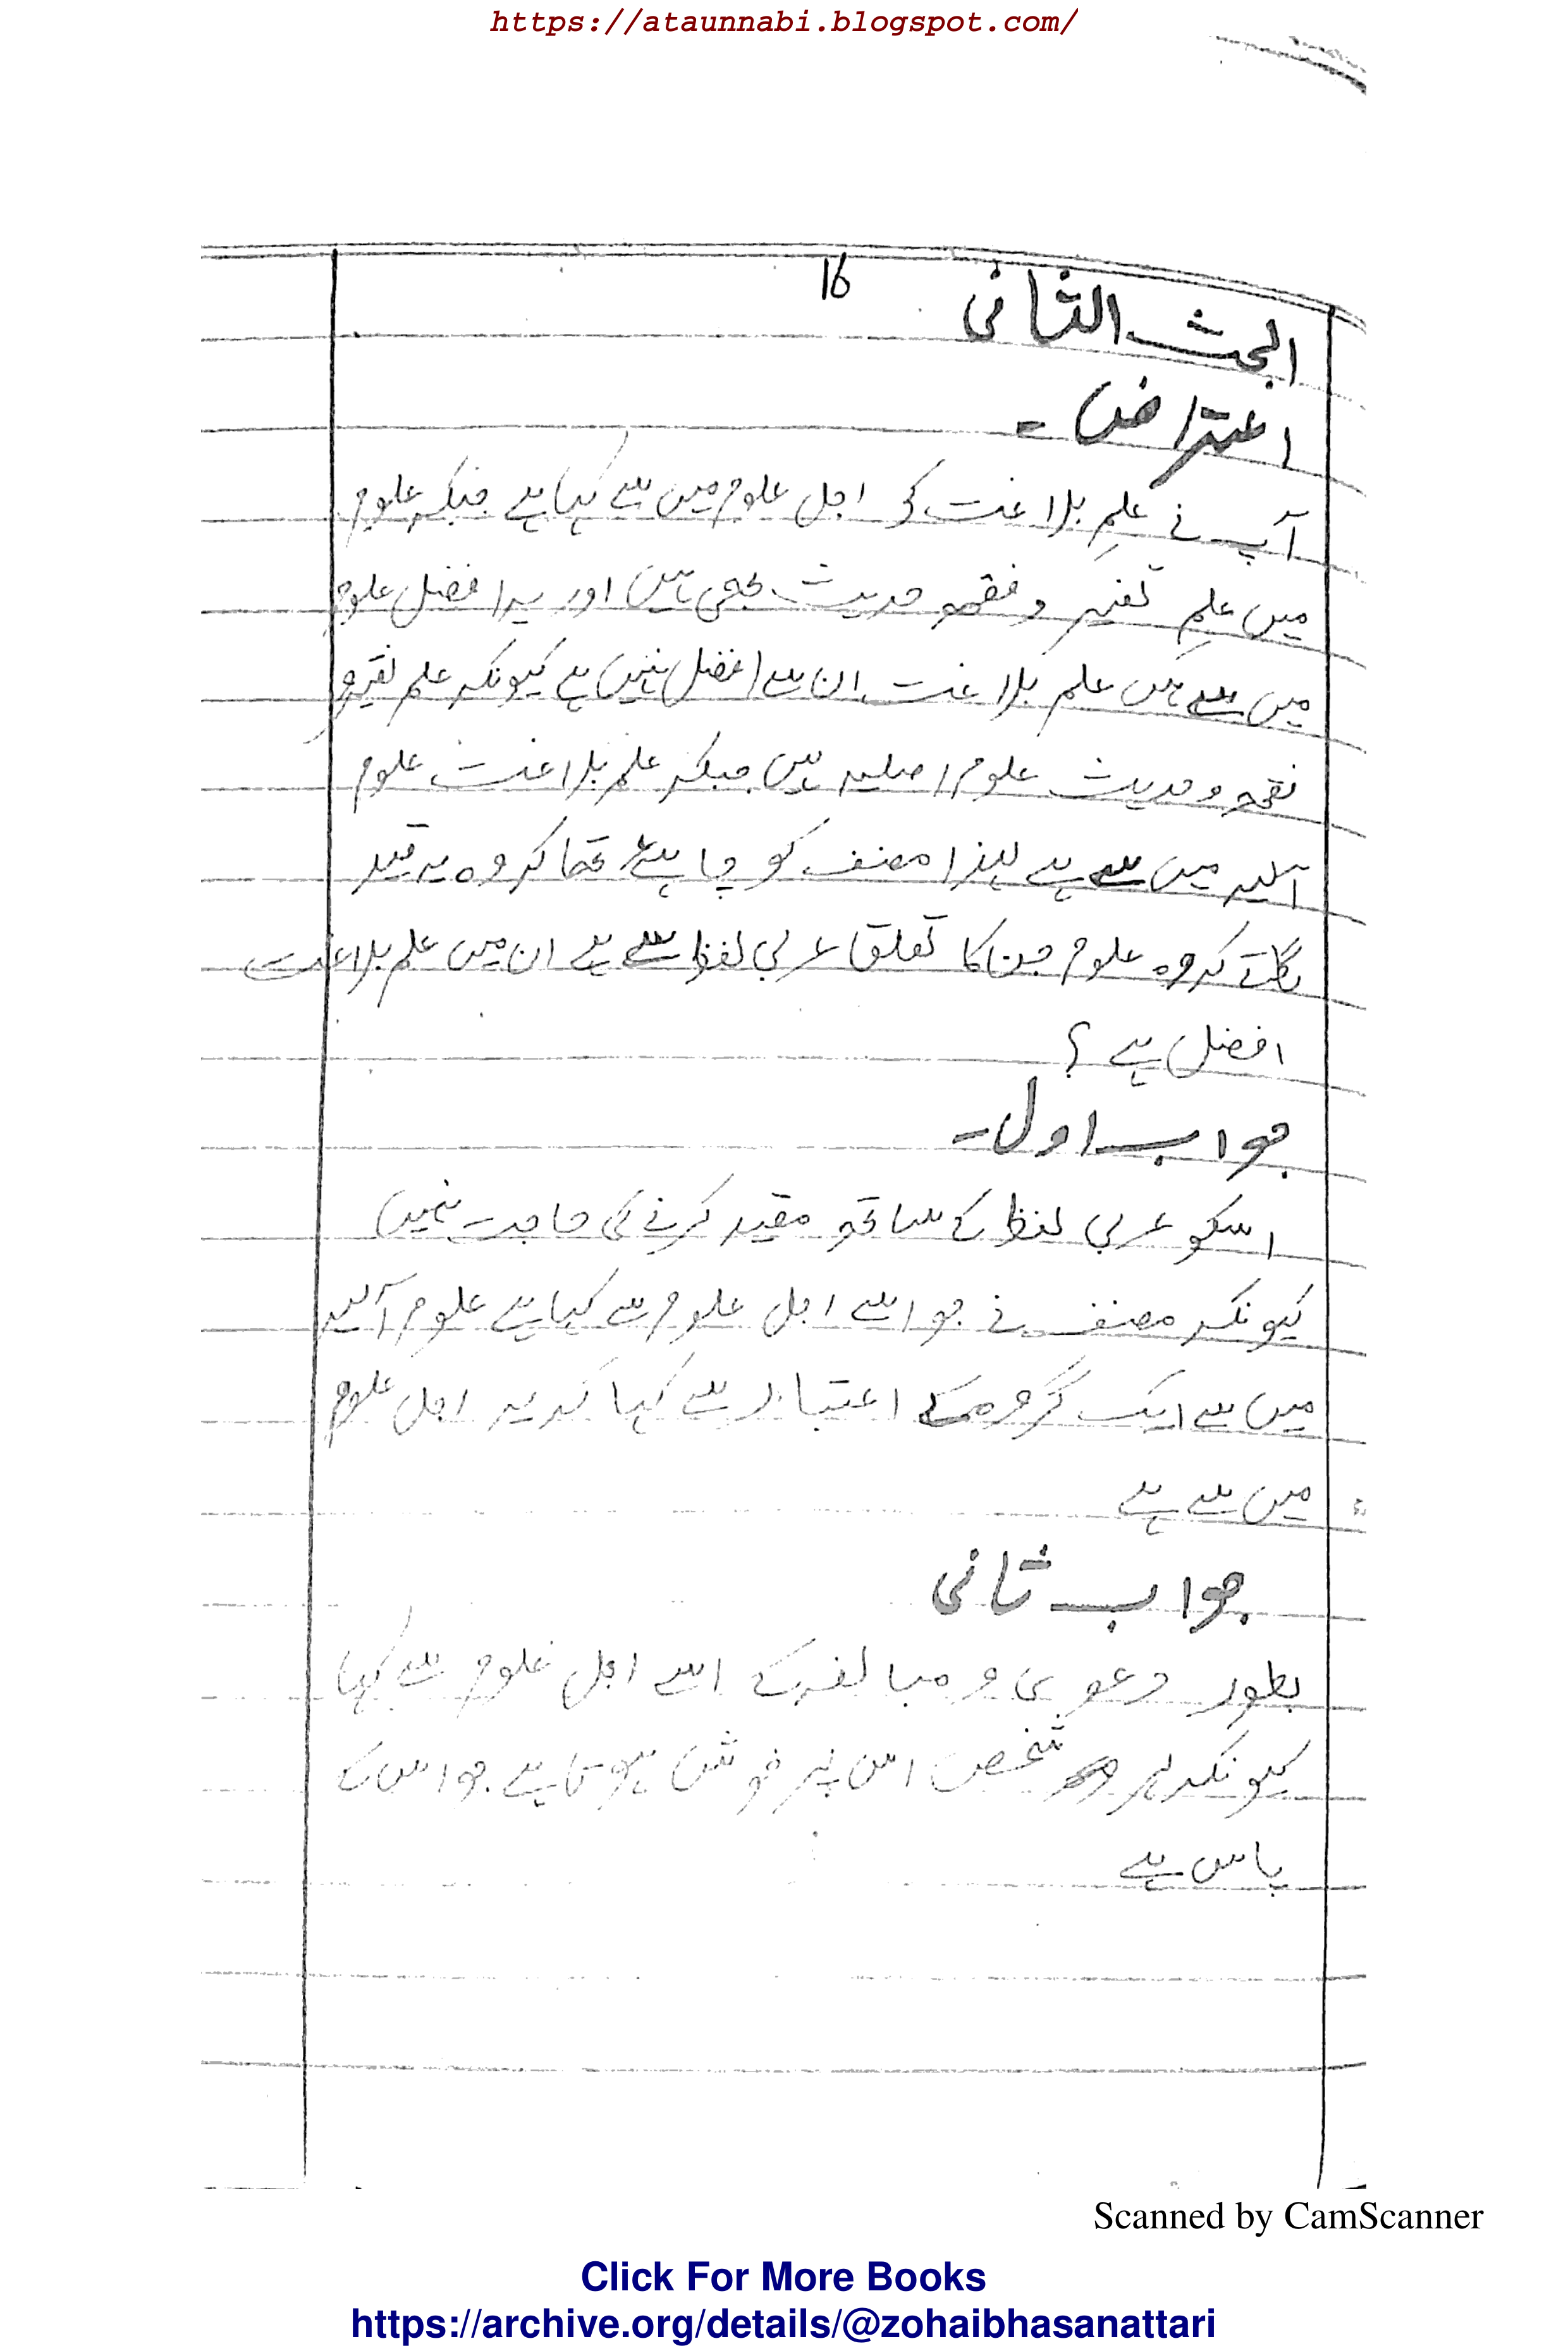 https://ataunnabi.blogspot.com/
16
البحث الثانی
اعتراض ۔
آپ نے علمِ بلاغت کو اجل علوم میں سے کہا ہے جبکہ علوم
میں علمِ تفسیر و فقہ و حدیث بھی ہیں اور یہ افضل علوم
میں سے ہیں علم بلاغت ان سے افضل نہیں ہے کیونکہ علم تفسیر و
فقہ و حدیث علوم اصلیہ ہیں جبکہ علم بلاغت علوم
آلیہ میں سے ہے لہذا مصنف کو چاہئے تھا کہ وہ یہ قید
لگاتے کہ وہ علوم جن کا تعلق عربی لفظ سے ہے ان میں علم بلاغت
افضل ہے ؟
جواب اول ۔
اسکو عربی لفظ کے ساتھ مقید کرنے کی حاجت نہیں
کیونکہ مصنف نے جو اسے اجل علوم سے کہا ہے علوم آلیہ
میں سے ایک گروہ کے اعتبار سے کہا کہ یہ اجل علوم
میں سے ہے
جواب ثانی
بطور دعوی و مبالغہ کے اسے اجل علوم سے کہا
کیونکہ ہر شخص اس پر خوش ہوتا ہے جو اس کے
پاس ہے
Scanned by CamScanner
Click For More Books
https://archive.org/details/@zohaibhasanattari